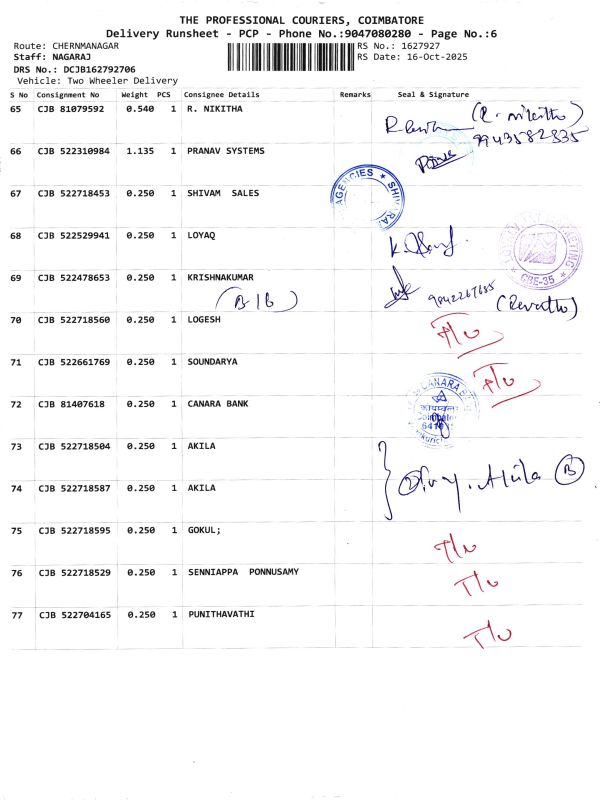 THE PROFESSIONAL COURIERS, COIMBATORE
Delivery Runsheet - PCP - Phone No.:9047080280 - Page No.:6
Route: CHERNMANAGAR RS No.: 1627927
Staff: NAGARAJ RS Date: 16-Oct-2025
DRS No.: DCJB162792706
Vehicle: Two Wheeler Delivery
S No Consignment No Weight PCS Consignee Details Remarks Seal & Signature
65 CJB 81079592 0.540 1 R. NIKITHA
9943582835
66 CJB 522310984 1.135 1 PRANAV SYSTEMS
67 CJB 522718453 0.250 1 SHIVAM SALES
AGENCIES ★
68 CJB 522529941 0.250 1 LOYAQ
CBE-35
69 CJB 522478653 0.250 1 KRISHNAKUMAR
(B1B) (Revathi)
70 CJB 522718560 0.250 1 LOGESH
71 CJB 522661769 0.250 1 SOUNDARYA
72 CJB 81407618 0.250 1 CANARA BANK
CANARA
73 CJB 522718504 0.250 1 AKILA
Akila B
74 CJB 522718587 0.250 1 AKILA
75 CJB 522718595 0.250 1 GOKUL;
76 CJB 522718529 0.250 1 SENNIAPPA PONNUSAMY
77 CJB 522704165 0.250 1 PUNITHAVATHI